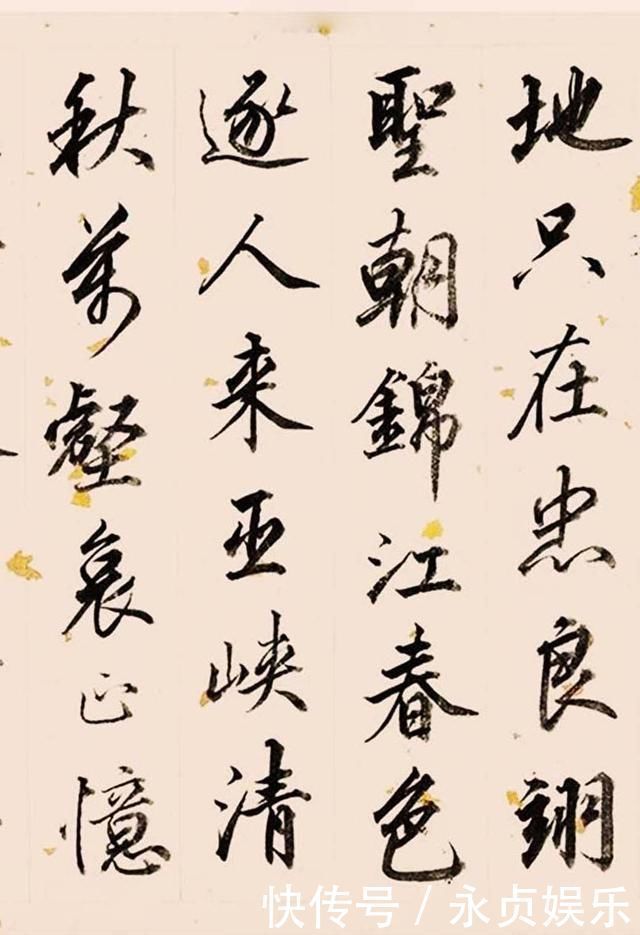 地只在忠良翊
聖朝錦江春色
逐人来巫峽清
秋萬壑哀正憶
快传号 / 永贞娱乐